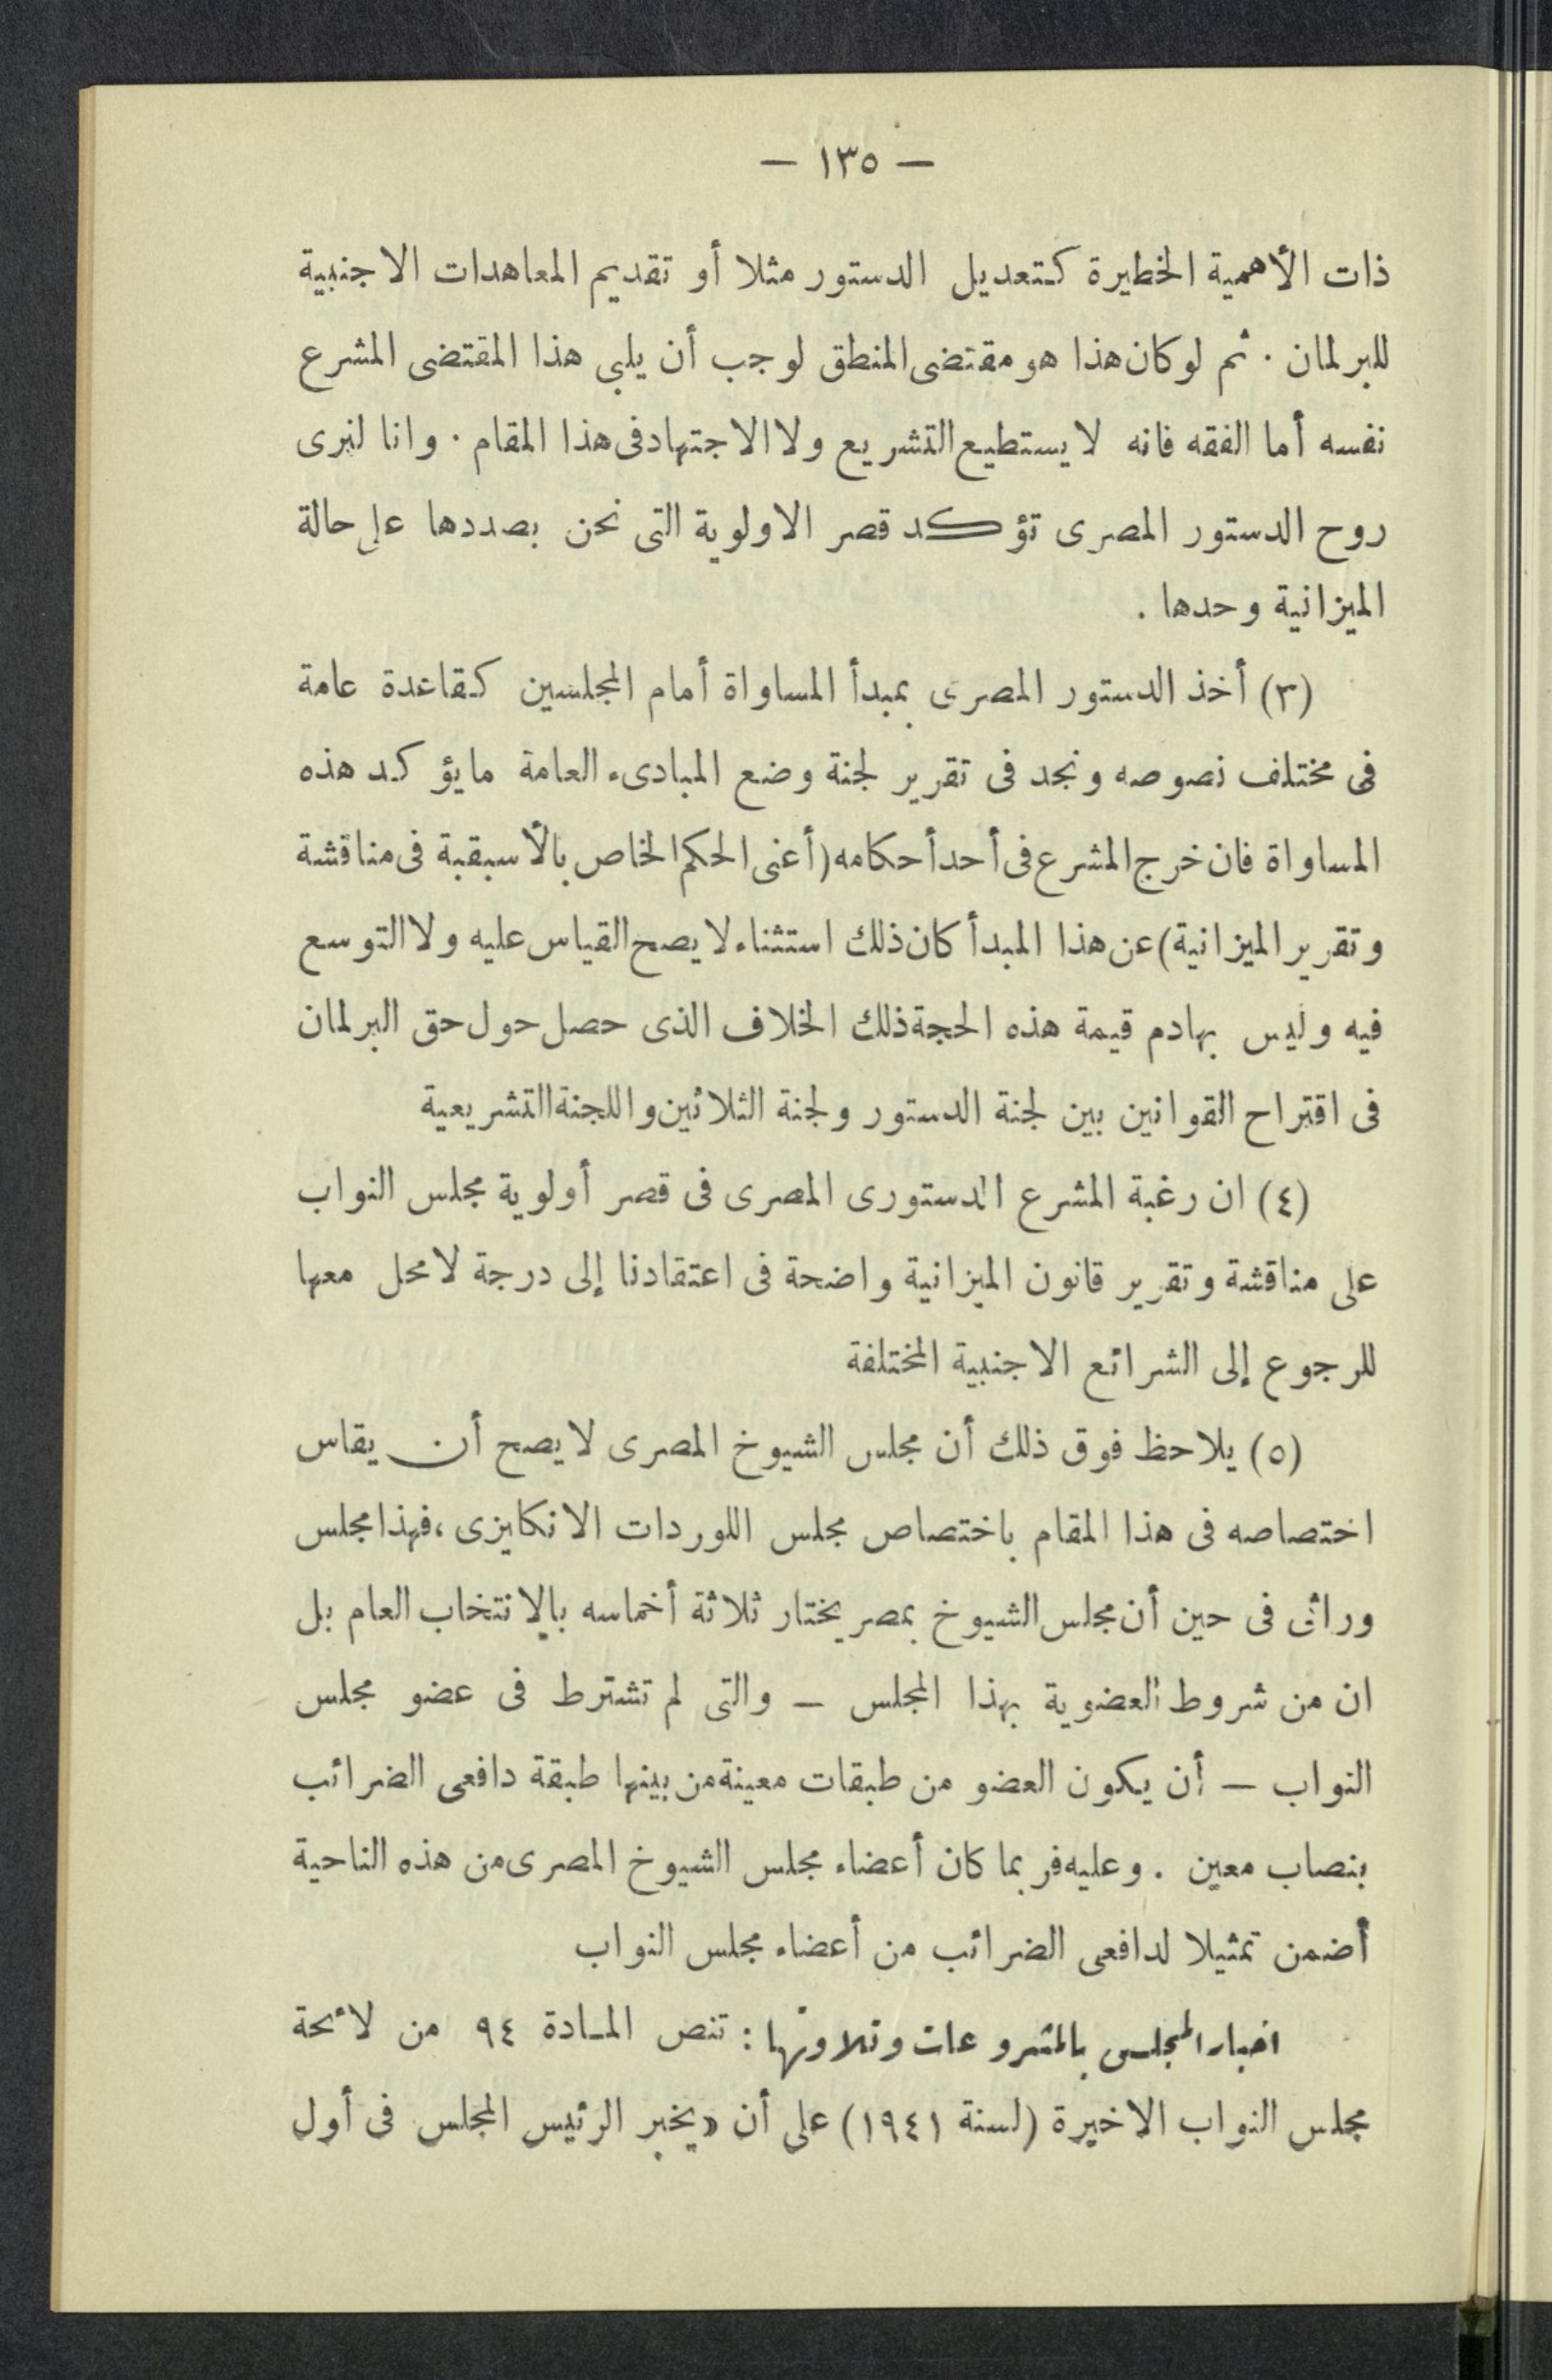 — ١٣٥ —
ذات الأهمية الخطيرة كتعديل الدستور مثلا أو تقديم المعاهدات الاجنبية
للبرلمان . ثم لو كان هذا هو مقتضى المنطق لوجب أن يلبى هذا المقتضى المشرع
نفسه أما الفقه فانه لا يستطيع التشريع ولا الاجتهاد فى هذا المقام . وانا لنرى
روح الدستور المصرى تؤكد قصر الاولوية التى نحن بصددها على حالة
الميزانية وحدها .
(٣) أخذ الدستور المصرى بمبدأ المساواة أمام المجلسين كقاعدة عامة
فى مختلف نصوصه ونجد فى تقرير لجنة وضع المبادىء العامة ما يؤكد هذه
المساواة فان خرج المشرع فى أحد أحكامه (أعنى الحكم الخاص بالأسبقية فى مناقشة
وتقرير الميزانية) عن هذا المبدأ كان ذلك استثناء لا يصح القياس عليه ولا التوسع
فيه وليس بهادم قيمة هذه الحجة ذلك الخلاف الذى حصل حول حق البرلمان
فى اقتراح القوانين بين لجنة الدستور ولجنة الثلاثين واللجنة التشريعية
(٤) ان رغبة المشرع الدستورى المصرى فى قصر أولوية مجلس النواب
على مناقشة وتقرير قانون الميزانية واضحة فى اعتقادنا إلى درجة لا محل معها
للرجوع إلى الشرائع الاجنبية المختلفة
(٥) يلاحظ فوق ذلك أن مجلس الشيوخ المصرى لا يصح أن يقاس
اختصاصه فى هذا المقام باختصاص مجلس اللوردات الانكليزى ، فهذا مجلس
وراثى فى حين أن مجلس الشيوخ بمصر يختار ثلاثة أخماسه بالانتخاب العام بل
ان من شروط العضوية بهذا المجلس — والتى لم تشترط فى عضو مجلس
النواب — أن يكون العضو من طبقات معينة من بينها طبقة دافعى الضرائب
بنصاب معين . وعليه فربما كان أعضاء مجلس الشيوخ المصرى من هذه الناحية
أضمن تمثيلا لدافعى الضرائب من أعضاء مجلس النواب
اخبار المجلس بالمشروعات وتلاوتها : تنص المادة ٩٤ من لائحة
مجلس النواب الاخيرة (لسنة ١٩٤١) على أن «يخبر الرئيس المجلس فى أول